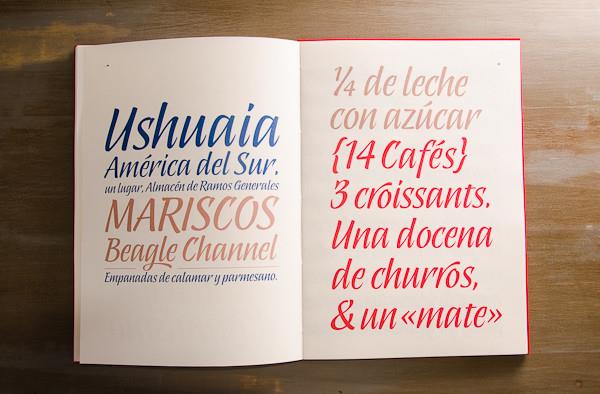 Ushuaia
América del Sur.
un lugar, Almacén de Ramos Generales
MARISCOS
Beagle Channel
Empanadas de calamar y parmesano.
¼ de leche
con azúcar
{14 Cafés}
3 croissants.
Una docena
de churros,
& un «mate»